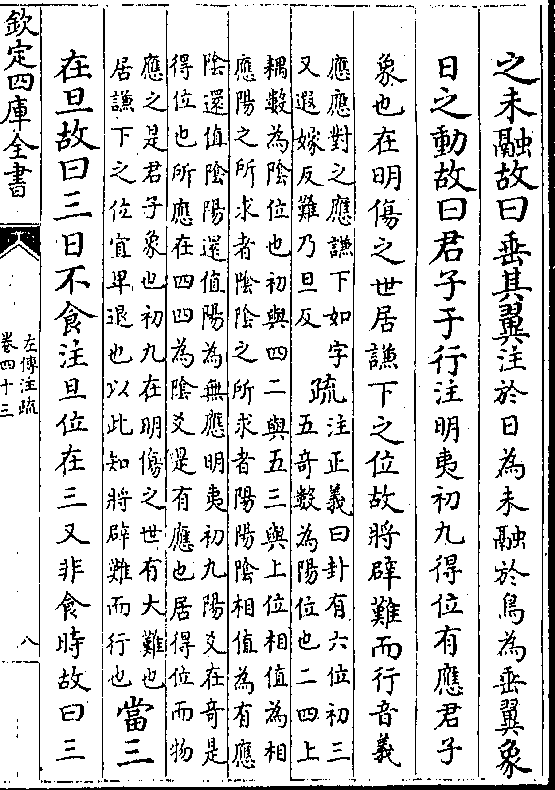 之未融故曰垂其翼注於日為未融於鳥為垂翼象
日之動故曰君子于行注明夷初九得位有應君子
象也在明傷之世居謙下之位故將辟難而行音義
應應對之應謙下如字
又遐嫁反難乃旦反
疏
注正義曰卦有六位初三
五奇數為陽位也二四上
耦數為陰位也初與四二與五三與上位相值為相
應陽之所求者陰陰之所求者陽陽陰相值為有應
陰還值陰陽還值陽為無應明夷初九陽爻在奇是
得位也所應在四四為陰爻是有應也居得位而物
應之是君子象也初九在明傷之世有大難也
居謙下之位宜卑退也以此知將辟難而行也
當三
在旦故曰三日不食注旦位在三又非食時故曰三
欽定四庫全書
左傳注疏
卷四十三
八